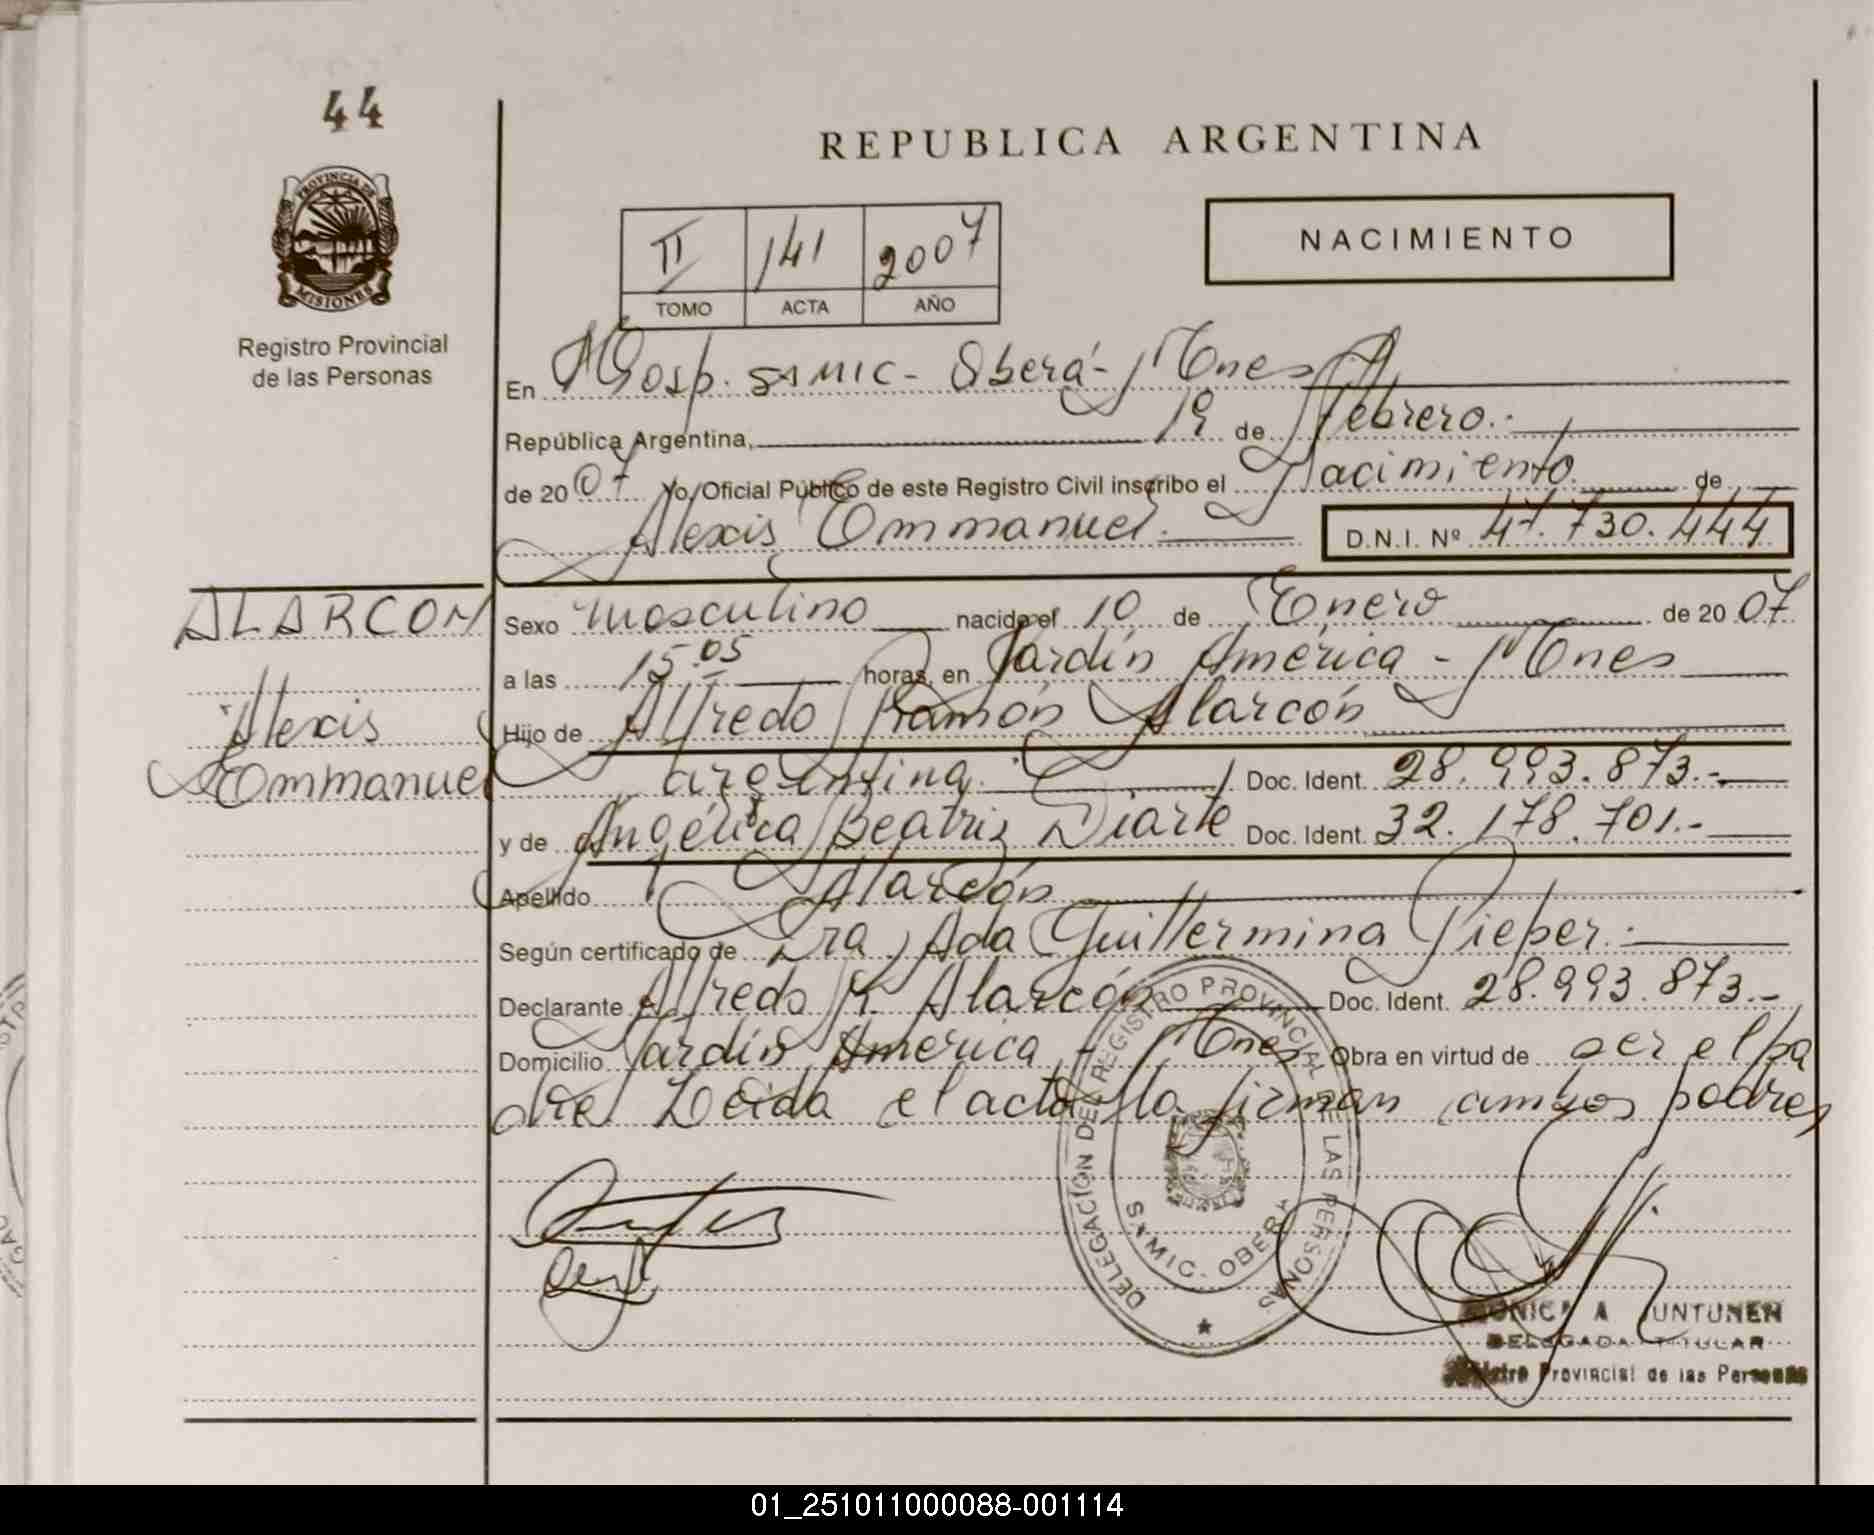 44
REPUBLICA ARGENTINA
PROVINCIA DE
MISIONES
Registro Provincial
de las Personas
II 141 2007
TOMO ACTA AÑO
NACIMIENTO
En Hosp. SAMIC - Oberá - Mnes
República Argentina, 1º de Febrero.-
de 2007 Yo, Oficial Público de este Registro Civil inscribo el Nacimiento de
Alexis Emmanuel. D.N.I. Nº 47.730.444
ALARCON
Alexis
Emmanuel
Sexo masculino nacido el 10 de Enero de 2007
a las 15.05 horas, en Jardín América - Mnes
Hijo de Alfredo Ramón Alarcón
argentina. Doc. Ident. 28.993.873.-
y de Angélica Beatriz Diarte Doc. Ident. 32.178.701.-
Apellido Alarcón
Según certificado de Dra. Ada Guillermina Pieper.-
Declarante Alfredo R. Alarcón Doc. Ident. 28.993.873.-
Domicilio Jardín América - Mnes Obra en virtud de ser el pa
dre Leida el acta la firman ambos padres
DELEGACIÓN DEL REGISTRO PROVINCIAL DE LAS PERSONAS
SAMIC - OBERA
MONICA A UNTUNEN
DELEGADA TITULAR
Registro Provincial de las Personas
01_251011000088-001114